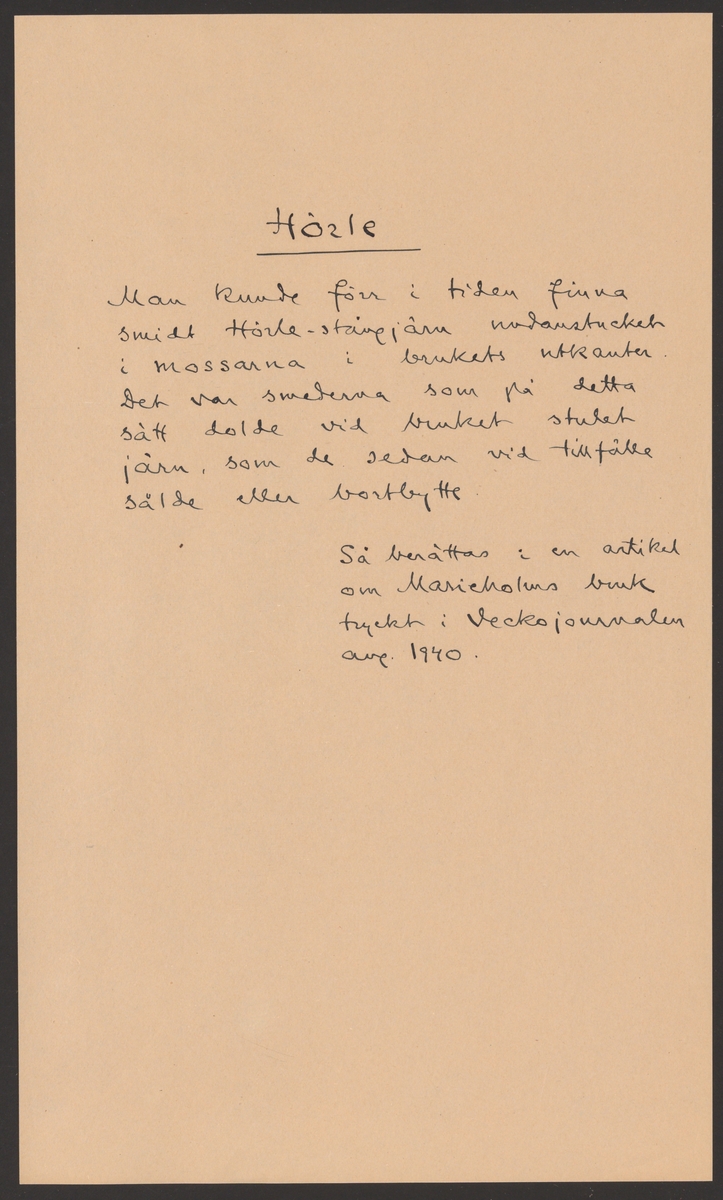 Hörle
Man kunde förr i tiden finna
smidt Hörle-stångjärn undanstucket
i mossarna i brukets utkanter.
Det var smederna som på detta
sätt dolde vid bruket stulet
järn, som de sedan vid tillfälle
sålde eller bortbytte.
Så berättas i en artikel
om Marieholms bruk
tryckt i Veckojournalen
aug. 1940.